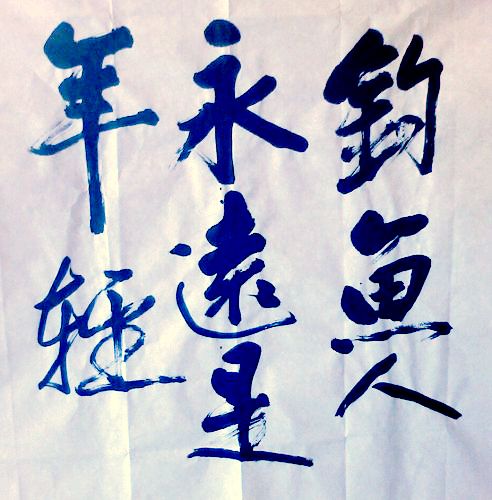 釣魚人
永遠是
年輕